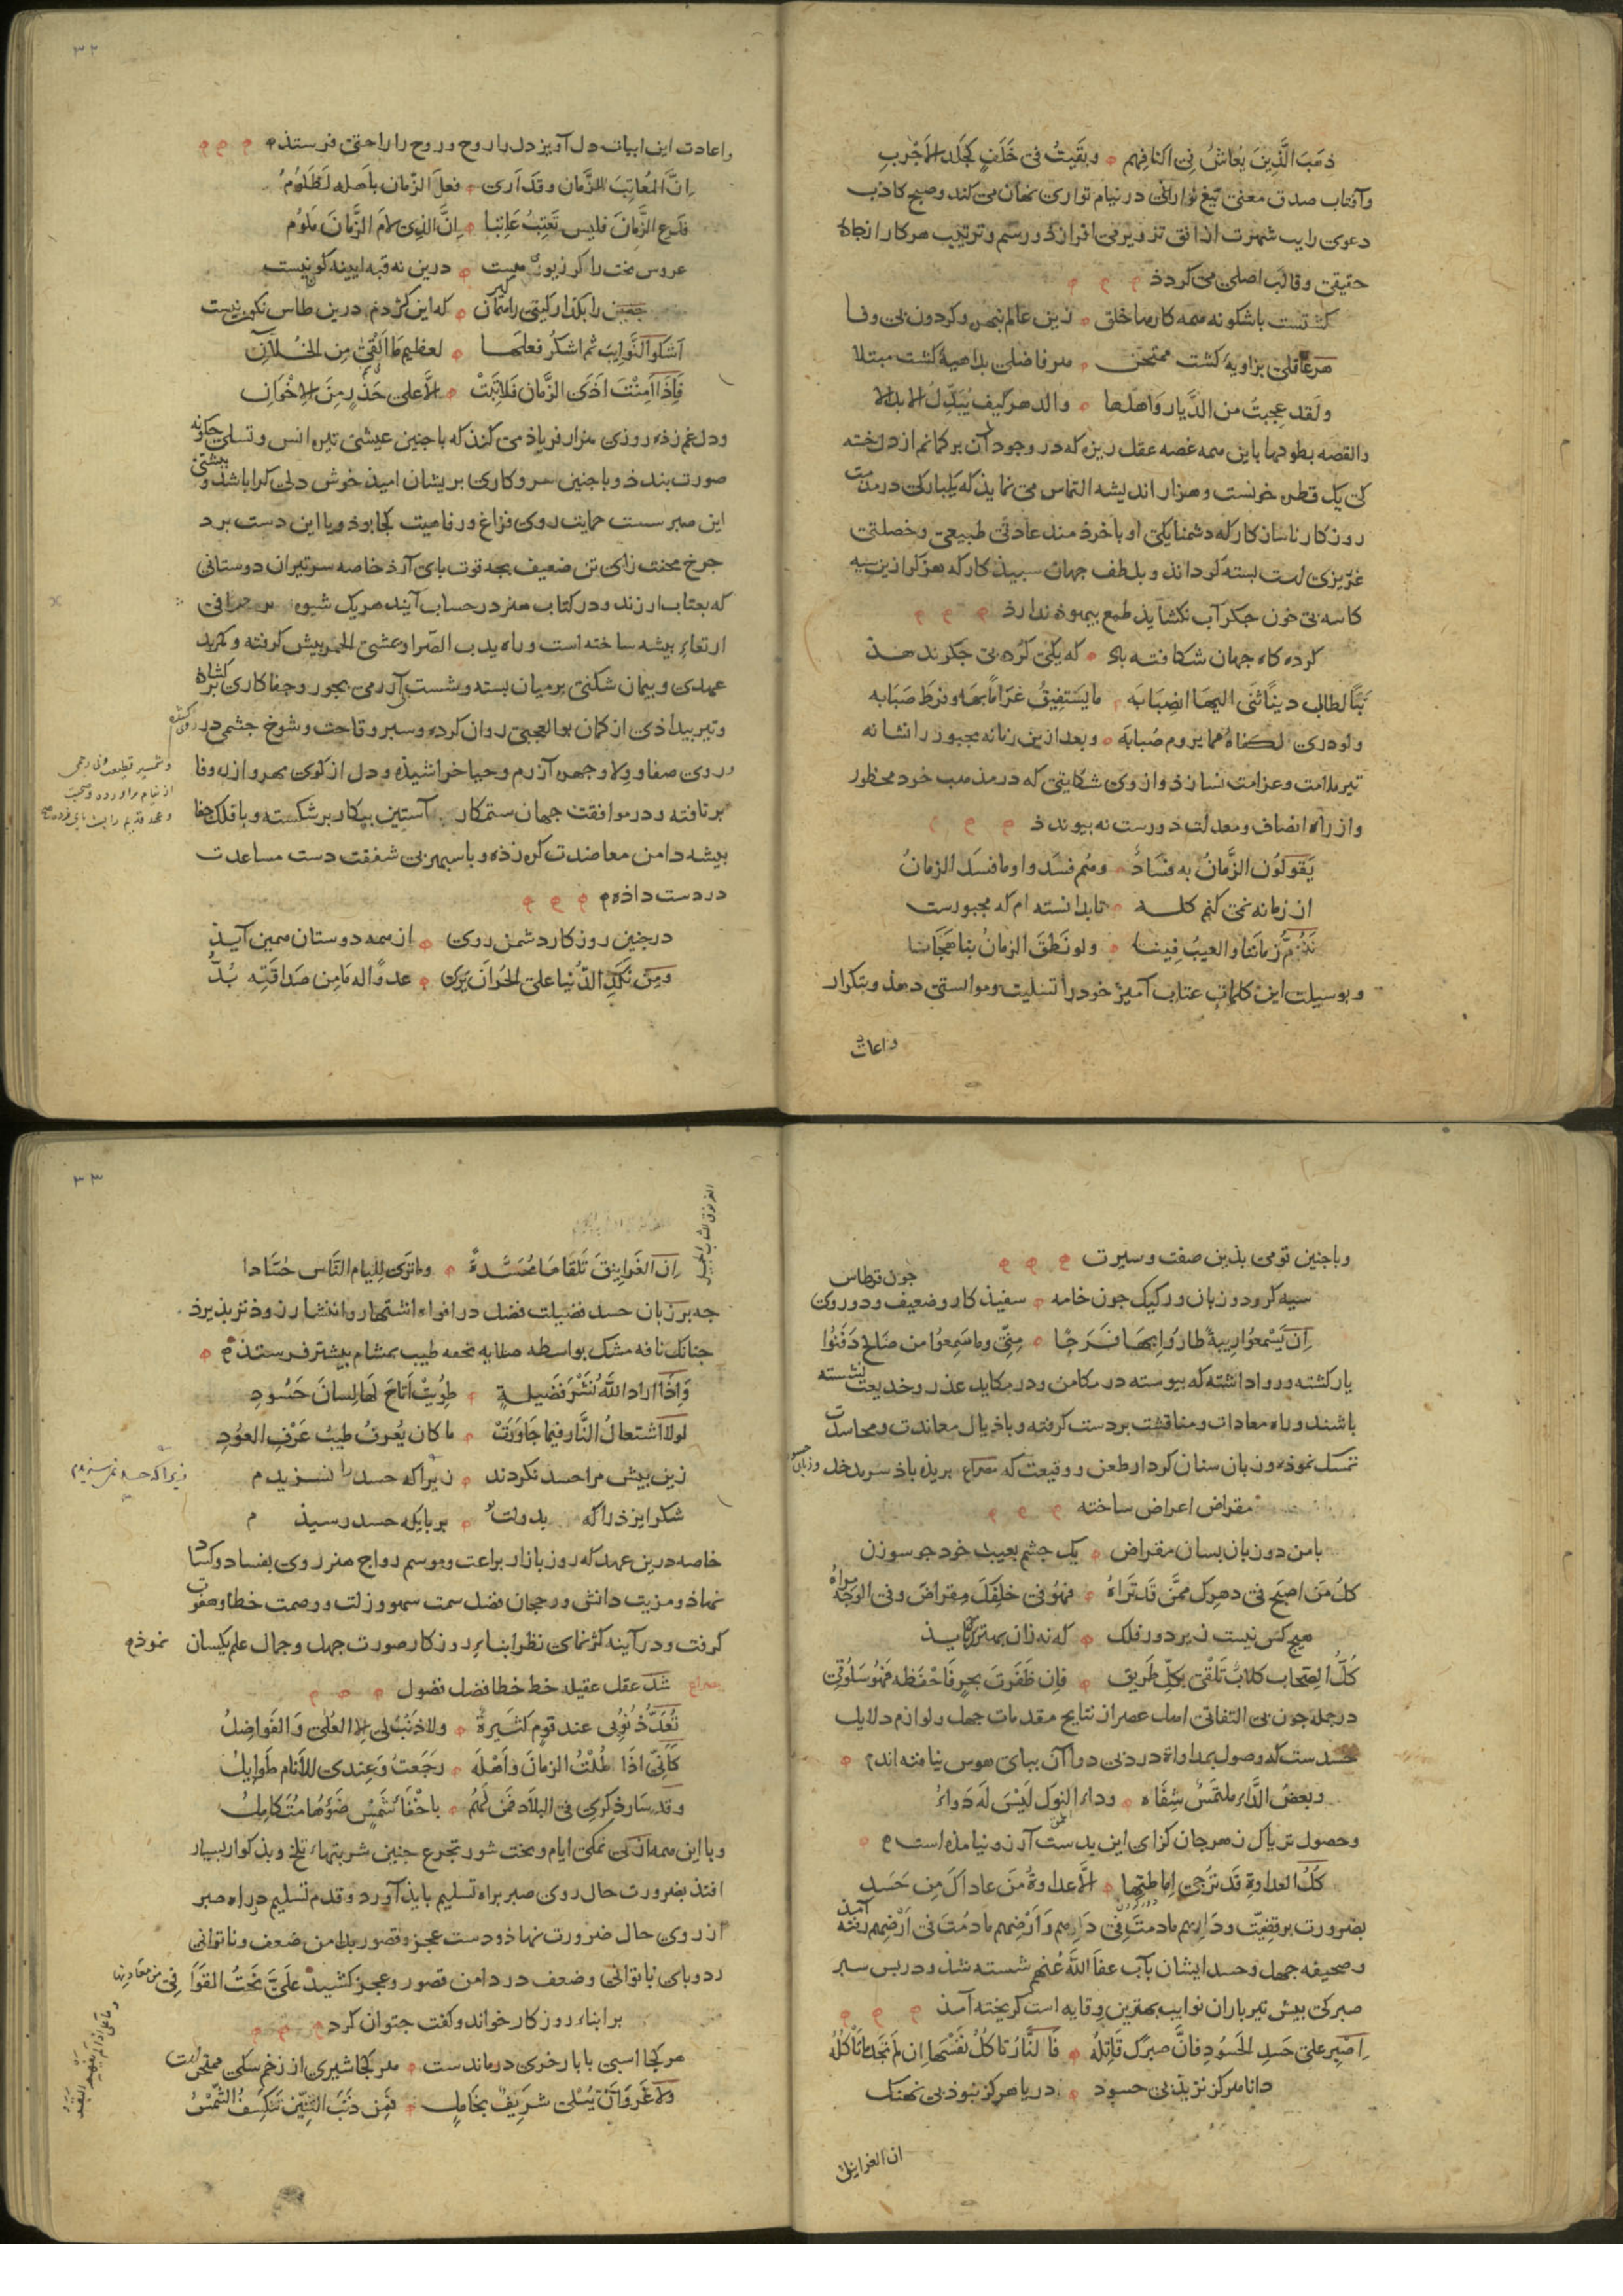 ذهب الَّذِينَ يُعاشُ فِي اكنافِهم وبَقيتُ فى خَلَفٍ كجلد الاَجْربِ
وآفتاب صدق معنى تيغ نورانى در نيام توارى نهان مى كند وصبح كاذب
دعوى رايت شهرت از افق تزوير مى افرازد ورسم وترتيب هر كار از نجاد
حقيقى وقالب اصلى مى كردد
كشتست باشكونه همه كارها خلق زين عالم نبهره وكردون بى وفا
هر عاقلى بزاويه كشت ممتحن هر فاضلى بداهيه كشت مبتلا
ولَقد عجبتُ من الدَّيار وَاهلها والدهر كيف يُبَدِّلُ الابدالا
والقصه بطولها با اين همه غصه عقل ريزه كه در وجود آن بر كمانم از دل خسته
كى يك قطره خونست وهزار انديشه التماس مى نمايد كه يكبارى در مدمت
روزكار ناسازكار كه دشمنايكى او با خردمند عادتى طبيعى وخصلتى
غريزى است بسته كرداند وبلطف جهان سپيد كار كه هرگز از ين سيه
كاسه بى خون جكر آب نكشايد طمع بيهوده ندارد
كرده كاه جهان شكافته باد كه يكى كرده بى جكر ندهد
تبًّا لطالب دينًا ثنى اليها انصِبَابَه ما يَستفيقُ غرَامًا بها وفرطَ صَبَابه
ولو درى لكفاهُ مما يروم صُبابة وبعد ازين زمانه مجبور را نشانه
تير ملامت وغرامت نسازد واز وى شكايتى كه در مذهب خود محظور
واز راه انصاف ومعدلت دورست نه پيوندد
يَقولُونَ الزَّمانُ به فسَادٌ وهُم فسَدوا وما فسَد الزمانُ
از زمانه نمى كنم كله تا بدانسته ام كه مجبورست
نَذُمُّ زماننا والعيبُ فِينا ولو نَطَقَ الزمانُ بنا هَجَانا
وبوسيلت اين كلمات عتاب آميز خود را تسليت وموانستى دهد وبتكرار
واعادت
٣٢
واعادت اين ابيات دل آويز دل را روح وروح را راحتى فرستد
اِنَّ المُعاتِبَ للزَّمان وقد اَرى فعلَ الزّمان باهله لَظَلُومُ
فدَعِ الزَّمانَ فليس تَعتِبُ عَاتِبا اِنَّ الذِى لامَ الزَّمانَ مَلومُ
عروس بخت را كر زيورى هست درين نه قبه آيينه كون نيست
چنين را بكذار كيتى را متان كه اين كژدم درين طاس نكون نيست
اَشكو النَّوايبَ ثم اشكرُ فعلَها لعظيم ما اَلْقى مِن الخلّانِ
فَاِذا اَمِنْتَ اَذَى الزَّمان فلا تَبتْ الاَّ على حَذَرٍ مِنَ الاِخْوَانِ
ودل غم زده روزى هزار فرياد مى كند كه با جنين عيشى تيره انس وتسلى جكونه
صورت بندد وبا جنين سر وكارى پريشان اميد خوش دلى كرا باشد وپشتى
اين صبر سست حمايت روى فراغ ورفاهيت كجا بود وبا اين دست برد
جرخ محنت زاى تن ضعيف بجه قوت باى آرد خاصه سر تيران دوستانى
كه بعتاب ارزند ودر كتاب هنر در حساب آيند هر يك شيوه
ارتعاء پيشه ساخته است وراه يدب الضَّرا ويمشى الخمر پيش كرفته وكمر بد
عهدى وپيمان شكنى بر ميان بسته وشست آزرمى بجور وجفاكارى بر كشاده
وتير بيدادى از كمان بو العجبى روان كرده وسپر وقاحت وشوخ چشمى در روى كشيده
وروى صفا وولا وچهره آزرم وحيا خراشيده ودل از كوى مهر واز ره وفا
بر تافته ودر موافقت جهان ستمكار آستين پيكار بر شكسته وبا فلك جفا
پيشه دامن معاضدت كره زده وبا سپهر بى شفقت دست مساعدت
در دست داده
در جنين روزكار دشمن روى از همه دوستان همين آيد
ومِنْ نَكَدِ الدُّنيا على الحُرِّ اَن يَرَى عدوًّا له مَا مِن صَدَاقَتِه بُدُّ
وشمشير قطيعت بى رحمى
از نيام بر آورده وصحبت
وعهد قديم را پشت پاى زده
وبا جنين قومى بدين صفت وسيرت
سيه كر ودو زبان وركيك جون خامه سفيد كار وضعيف ودو روى جون قرطاس
اِن يَسْمعُوا رِيبةً طارُوا بها فَرحًا مِنِّى وما سَمِعُوا من صَالحٍ دَفَنُوا
يار كشته وروا داشته كه پيوسته در مكامن ودر مكايد غدر وخديعت نشسته
باشند وراه معادات ومناقشت بر دست كرفته وباذيال معاندت ومحاسدت
تمسك نموده وزبان سنان كردار طعن ووقيعت كه مصراع بريده باد سر بد خلد وزبان
مقراض اعراض ساخته
با من دو زبان بسان مقراض يك جشم بعيب خود جو سوزن
كلُّ مَن اصبَحَ فى دهرك ممَّن قَد تَرَاهُ فهُو فى خلفِكَ مِقراضٌ وفى الوجه مرآهُ
هيچ كس نيست زير دور فلك كه نه زان بهترك بايد
كلُّ الصِحاب كلابٌ تَلقى بكلّ طريق فإن ظَفَرتَ بحرٍ فاحْفظه فهُو سَلوُقى
در جمله جون بى التفاتى اهل عصر از نتايج مقدمات جهل ولوازم دلايل
حسدست كه وصول بمداواة درد بى دواء آن بپاى هوس نيافته اند
وبعضُ الدَّاء ملتمَسٌ شِفَاه وداء النوك لَيْسَ لَه دَواءُ
وحصول ترياك زهر جان كزاى اين بدست آرزو نيامده است
كُلُّ العداوةِ قَد تُرْجى اِماطتها الاَّ عداوةَ مَن عاداكَ مِن حَسَدِ
بضرورت بر قضيّت ودَارِهِم ما دمتَ فى دَارِهم وَاَرْضِهِم ما دُمتَ فى اَرْضِهِم رفته آمد
وصحيفه جهل وحسد ايشان بآب عفا اللَّهُ عَنهُم شسته شد ودر پس سپر
صبر كى پيش تير باران نوايب بهترين وقايه است كريخته آمد
اِصبر على حَسَدِ الحَسُودِ فاِنَّ صبرَك قَاتِلُه فَالنَّارُ تاكُلُ نَفْسَها اِن لم تَجد مَا تَاكُلُهْ
دانا هركز نزيد بى حسود دريا هركز نبود بى نهنك
ان الغرانيق
٣٣
اِنَ الغَرانِيقَ تَلقَاهَا مُحَسَّدةً وما تَرى لِلِئام النَّاس حُسَّادا
چه بر زبان حسد فضيلت فضل در افواه اشتهار وانتشار زودتر پذيرد
چنانك نافه مشك بواسطه صلابه تحفه طيب بمشام بيشتر فرستد
وَاِذَا اراد اللَّهُ نَشْرَ فَضيلةٍ طُوِيَتْ اَتاحَ لَها لِسانَ حَسُودِ
لولا اشتعالُ النَّار فيما جَاوَرَتْ ما كان يُعرفُ طيبُ عَرْفِ العوُدِ
زين پيش مرا حسد نكردند زيرا كه حسد را نسزيدم
شكر ايزد را كه بدولت تو بر بايكه حسد رسيد م
خاصه درين عهد كه روز بازار براعت وموسم رواج هنر روى بفساد وكساد
نهاد ومزيت دانش ورجحان فضل سمت سهو وزلت ووصمت خطا وهفوت
كرفت ودر آينه كژ نماى نظر ابناء روزكار صورت جهل وجمال علم يكسان نموده
مصراع شد عقل عقيله خط خطا فضل فضول
تُعَدُّ ذُنُوبى عند قومٍ كثيرةً ولا ذنبَ لى الا العُلى وَالفَواضِلُ
كَأَنّى اذَا طُلْتُ الزمانَ وَأهْلَه رَجَعتُ وَعِندى للاَنام طَوَايلُ
وقد سَارَ ذِكرِى فى البلَاد فمَن لهُم باخفاء شَمسٍ ضَوْءُها مُتَكامِلُ
وبا اين همه از بى نمكى ايام وبخت شور تجرع جنين شربتهاء تلخ وبد كوار بسيار
افتد بضرورت حال روى صبر براه تسليم بايد آورد وقدم تسليم در راه صبر
از روى حال ضرورت نهاد ودست عجز وقصور بدامن ضعف وناتوانى
زد وپاى ناتوانى وضعف در دامن قصور وعجز كشيد علَىَّ نَحتُ القَوَافِى من معَادِنِها
بر ابناء روزكار خواند وكفت چتوان كرد
هر كجا اسبى با بار خرى درماندست هر كجا شيرى از زخم سكى ممتحن است
ولا غروَ اَنْ يُبْلى شريفٌ بخَاملٍ فمِن ذنَبِ التِنّين تَنكسِفُ الشَّمْسُ
الغرنوق الشاب الجميل
زيرا كه حسد نمى سزيدم
وما علَىَّ اِذَا لم تَفهَمِ البَقَرُ